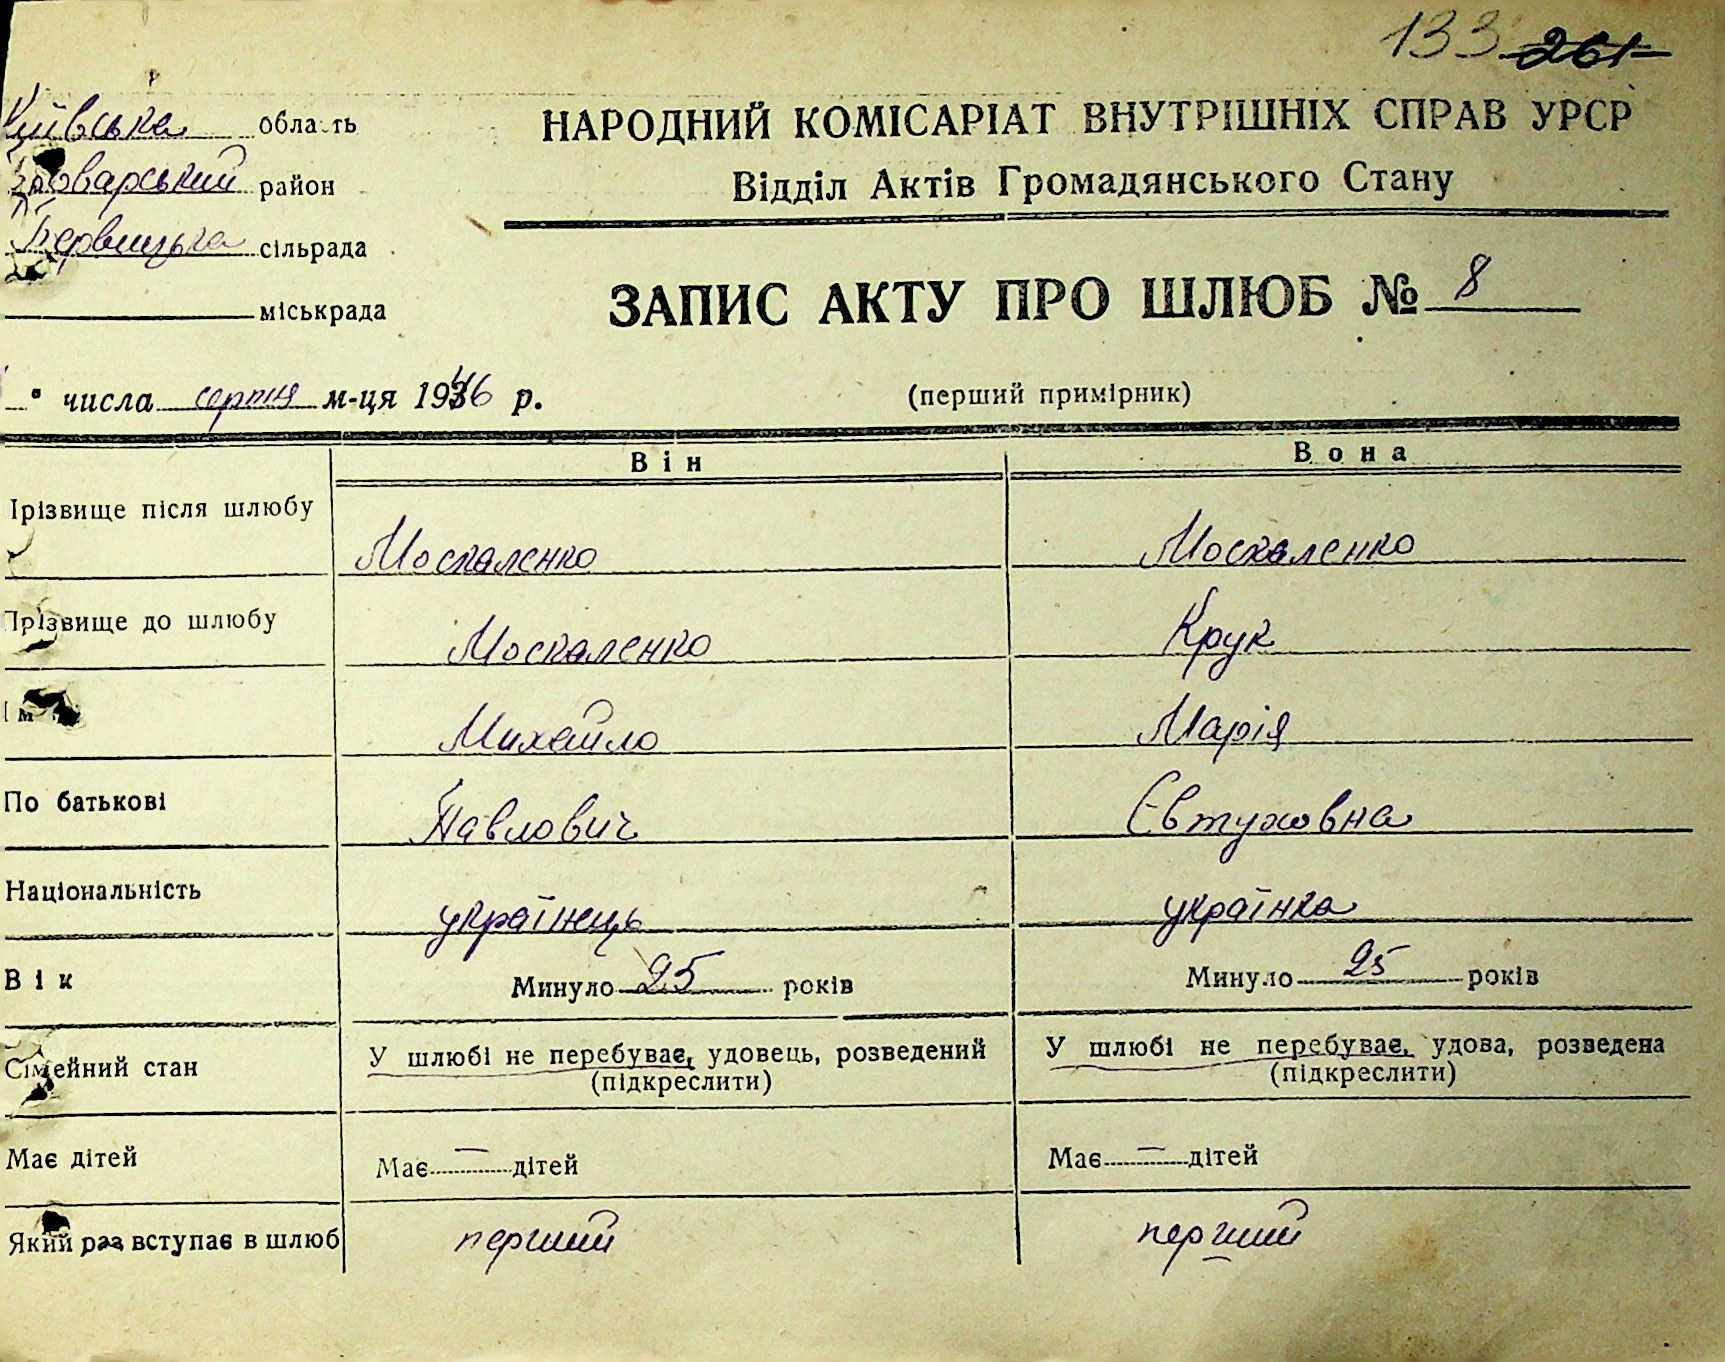 133 261
Київська область
Броварський район
сільрада
міськрада
НАРОДНИЙ КОМІСАРІАТ ВНУТРІШНІХ СПРАВ УРСР
Відділ Актів Громадянського Стану
ЗАПИС АКТУ ПРО ШЛЮБ № 8
числа серпня м-ця 1946 р.
(перший примірник)
Він Вона
Прізвище після шлюбу Москаленко Москаленко
Прізвище до шлюбу Москаленко Крук
Ім Михайло Марія
По батькові Павлович Євтуховна
Національність українець українка
Вік Минуло 25 років Минуло 25 років
Сімейний стан У шлюбі не перебуває, удовець, розведений У шлюбі не перебуває, удова, розведена
(підкреслити) (підкреслити)
Має дітей Має — дітей Має — дітей
Який раз вступає в шлюб перший перший